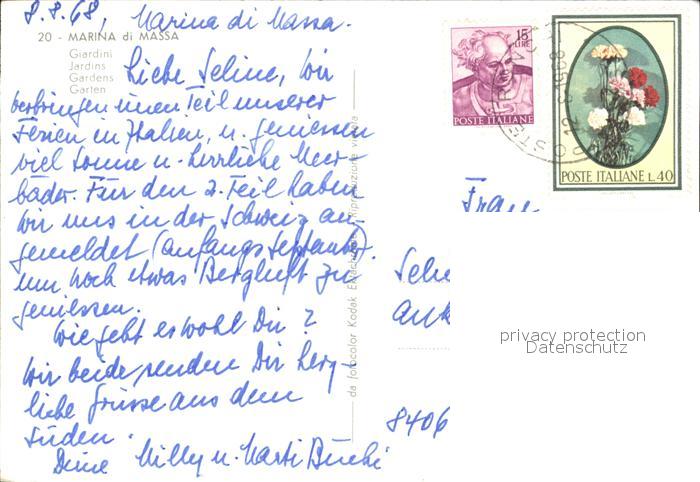 8.8.68, Marina di Massa.
20 - MARINA di MASSA
Giardini
Jardins
Gardens
Garten
Liebe Seline, Wir
verbringen einen Teil unserer
Ferien in Italien, u. geniessen
viel Sonne u. herrliche Meer-
bäder. Für den 2. Teil haben
wir uns in der Schweiz an-
gemeldet (anfangs September).
um noch etwas Bergluft zu
geniessen.
Wie geht es wohl Dir?
Wir beide senden Dir herz-
liche Grüsse aus dem
Süden.
Deine Milly u. Marti Büchi
da fotocolor Kodak Ektachrome Riproduzione vietata
15 LIRE
POSTE ITALIANE
1968
POSTE ITALIANE L.40
Frau
8406
privacy protection
Datenschutz